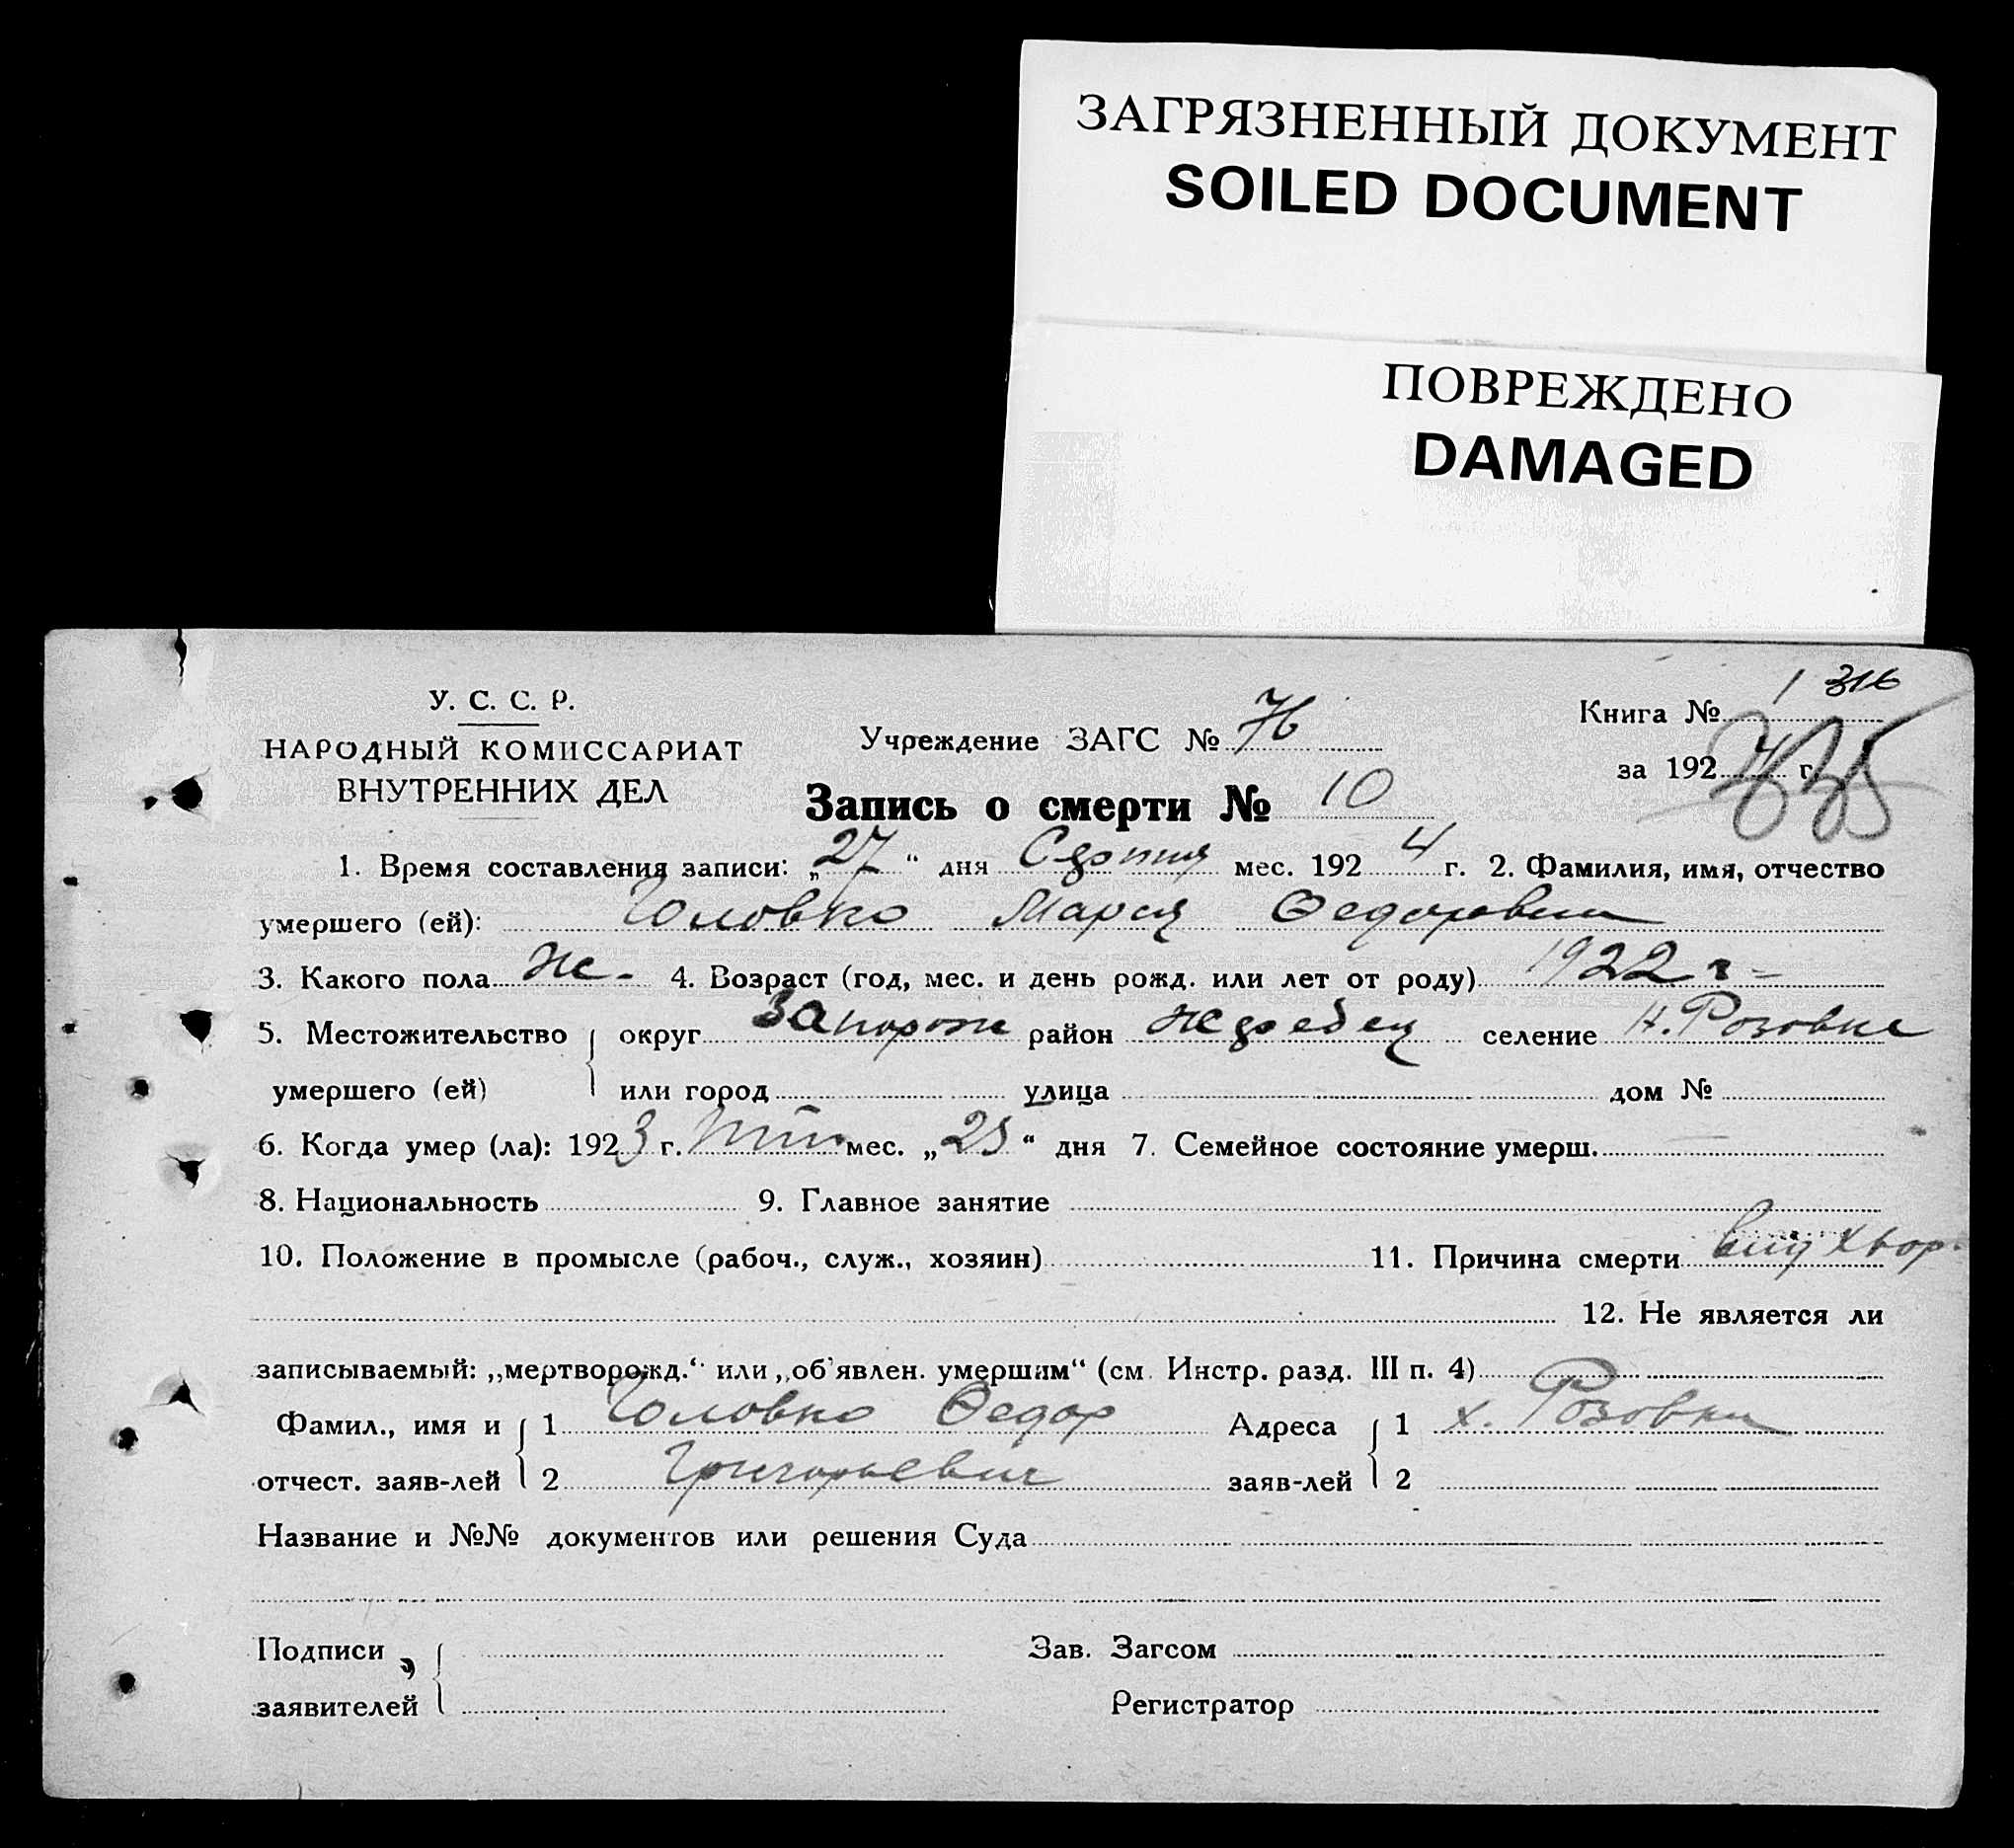 ЗАГРЯЗНЕННЫЙ ДОКУМЕНТ
SOILED DOCUMENT
ПОВРЕЖДЕНО
DAMAGED
1 316
У. С. С. Р.
НАРОДНЫЙ КОМИССАРИАТ
ВНУТРЕННИХ ДЕЛ
Учреждение ЗАГС № 76
Книга №
за 192 4 г.
Запись о смерти № 10
1. Время составления записи: „27“ дня Серпня мес. 192 4 г. 2. Фамилия, имя, отчество
умершего (ей): Головко Мария Федоровна
3. Какого пола Же- 4. Возраст (год, мес. и день рожд. или лет от роду) 1922 г-
5. Местожительство округ Запорож район Жеребец селение Н. Розовка
умершего (ей) или город улица дом №
6. Когда умер (ла): 1923 г. мес. „25“ дня 7. Семейное состояние умерш.
8. Национальность 9. Главное занятие
10. Положение в промысле (рабоч., служ., хозяин) 11. Причина смерти від хвор.
12. Не является ли
записываемый: „мертворожд.“ или „об'явлен. умершим“ (см. Инстр. разд. III п. 4)
Фамил., имя и 1 Головко Федор Адреса 1 х. Розовка
отчест. заяв-лей 2 Григорьевич заяв-лей 2
Название и №№ документов или решения Суда
Подписи Зав. Загсом
заявителей Регистратор